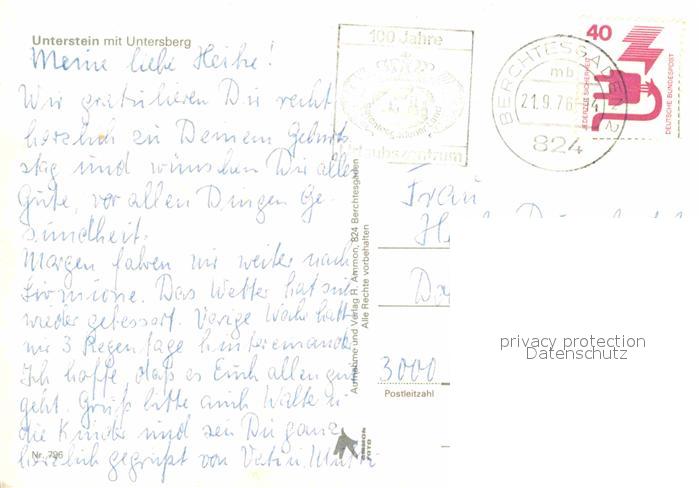 Unterstein mit Untersberg
Meine liebe Heike!
Wir gratulieren Dir recht
herzlich zu Deinem Geburts-
tag und wünschen Dir alles
Gute, vor allen Dingen Ge-
sundheit.
Morgen fahren wir weiter nach
Sirmione. Das Wetter hat sich
wieder gebessert. Vorige Woche hatten
wir 3 Regentage hintereinander.
Ich hoffe, daß es Euch allen gut
geht. Grüß bitte auch Walter u.
die Kinder und sei Du ganz
herzlich gegrüßt von Vati u. Mutti
Nr. 796
Aufnahme und Verlag R. Ammon, 824 Berchtesgaden
Alle Rechte vorbehalten
AMMON
FOTO
100 Jahre
Urlaubszentrum
BERCHTESGADEN 2
mb
21.9.76
824
40
JEDERZEIT SICHERHEIT
DEUTSCHE BUNDESPOST
Frau
3000
Postleitzahl
privacy protection
Datenschutz